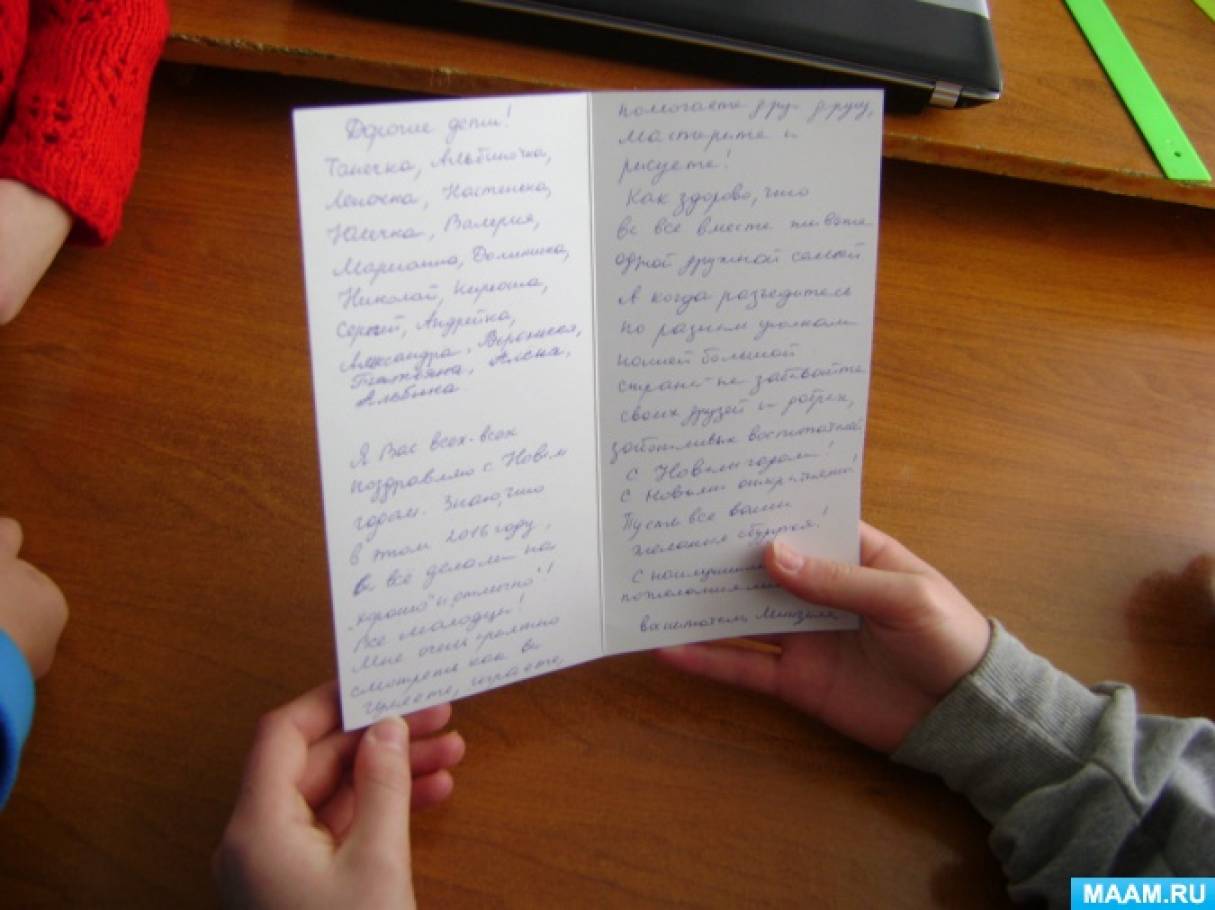 Дорогие дети!
Танечка, Альбиночка,
Леночка, Настенька,
Юлечка, Валерия,
Марианна, Доминика,
Николай, Кирюша,
Сергей, Андрейка,
Александра, Вероника,
Татьяна, Алена,
Альбина
Я Вас всех-всех
поздравляю с Новым
годом. Знаю, что
в этом 2016 году,
вы всё делали на
"хорошо" и "отлично"!
Все молодцы!
Мне очень приятно
смотреть как вы
гуляете, играете,
помогаете друг другу,
мастерите и
рисуете!
Как здорово, что
вы все вместе живёте
одной дружной семьей
А когда разъедитесь
по разным уголкам
нашей большой
страны не забывайте
своих друзей и добрых,
заботливых воспитателей
С Новым годом!
С новыми открытиями!
Пусть все ваши
желания сбудутся!
С наилучшими
пожеланиями
воспитатель
MAAM.RU